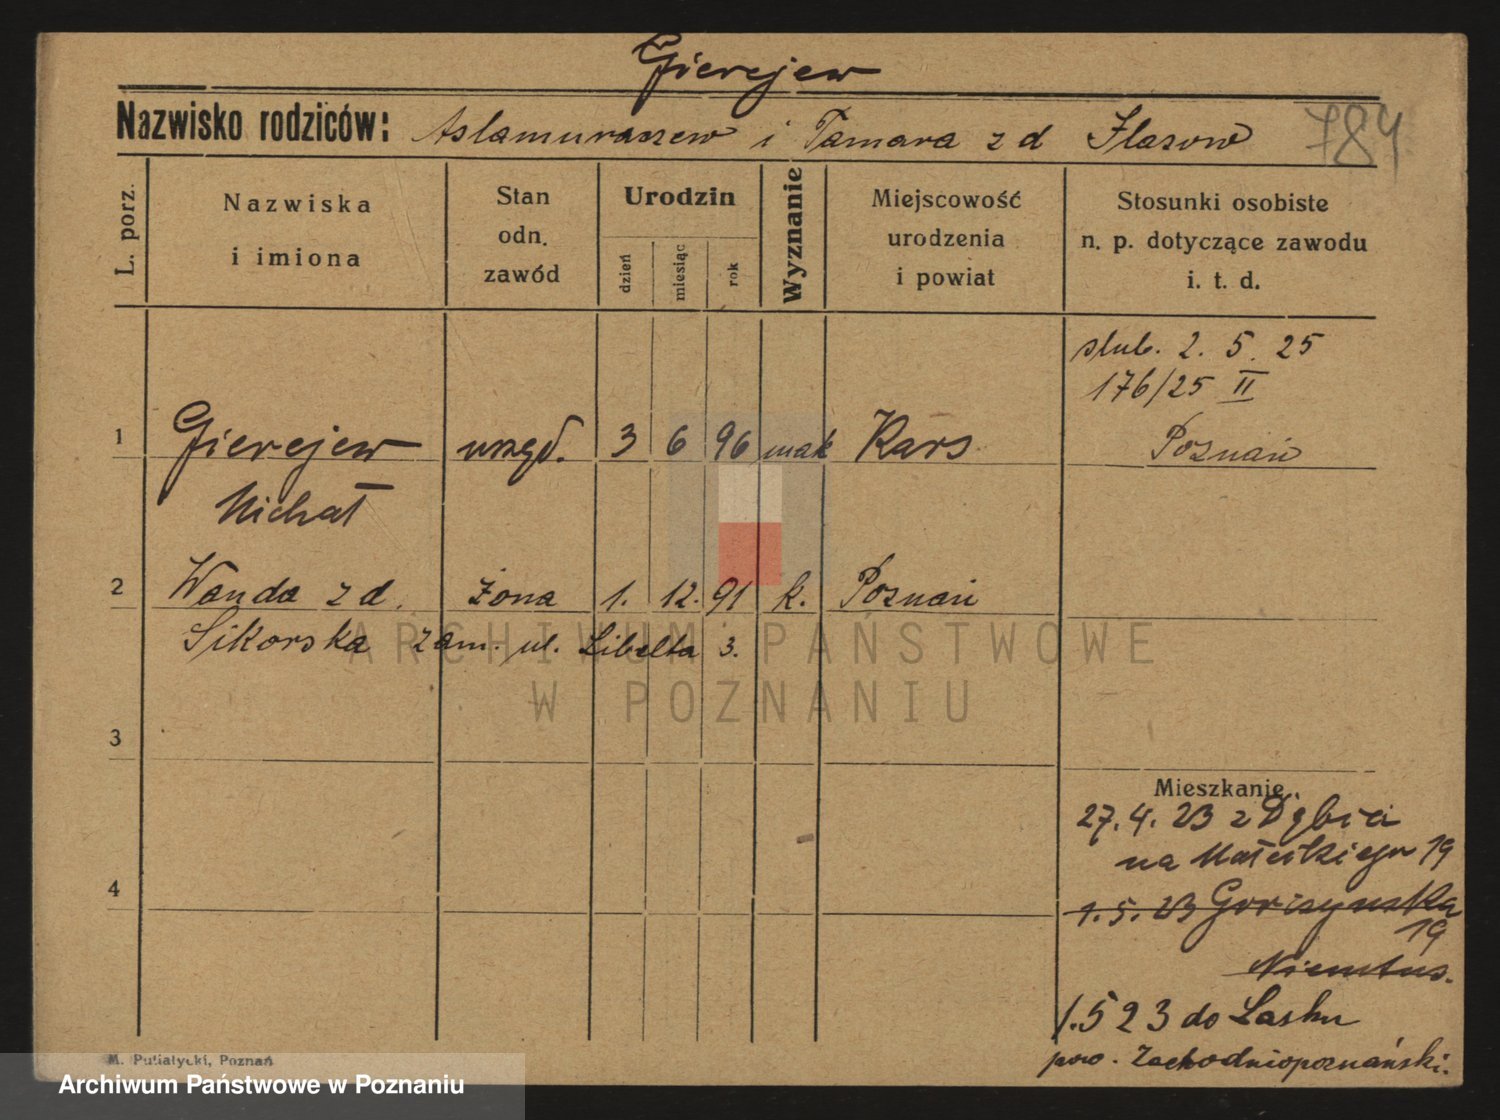 Gierejew
Nazwisko rodziców: Aslamurazew i Tamara z d Ilasow 784
L. porz.
Nazwiska
i imiona
Stan
odn.
zawód
Urodzin
dzień
miesiąc
rok
Wyznanie
Miejscowość
urodzenia
i powiat
Stosunki osobiste
n. p. dotyczące zawodu
i. t. d.
slub. 2. 5. 25
176/25 II
1 Gierejew urzęd. 3 6 96 mah Kars Poznań
Michał
2 Wanda z d. żona 1. 12. 91 k. Poznań
Sikorska zam. ul. Libelta 3.
ARCHIWUM PAŃSTWOWE
W POZNANIU
3
Mieszkanie.
27. 4. 23 z Dębia
na Małeckiego 19
4
1. 5. 23
19
1. 5 23 do Lasku
pow. Zachodniopoznański.
M. Putiatycki, Poznań
Archiwum Państwowe w Poznaniu